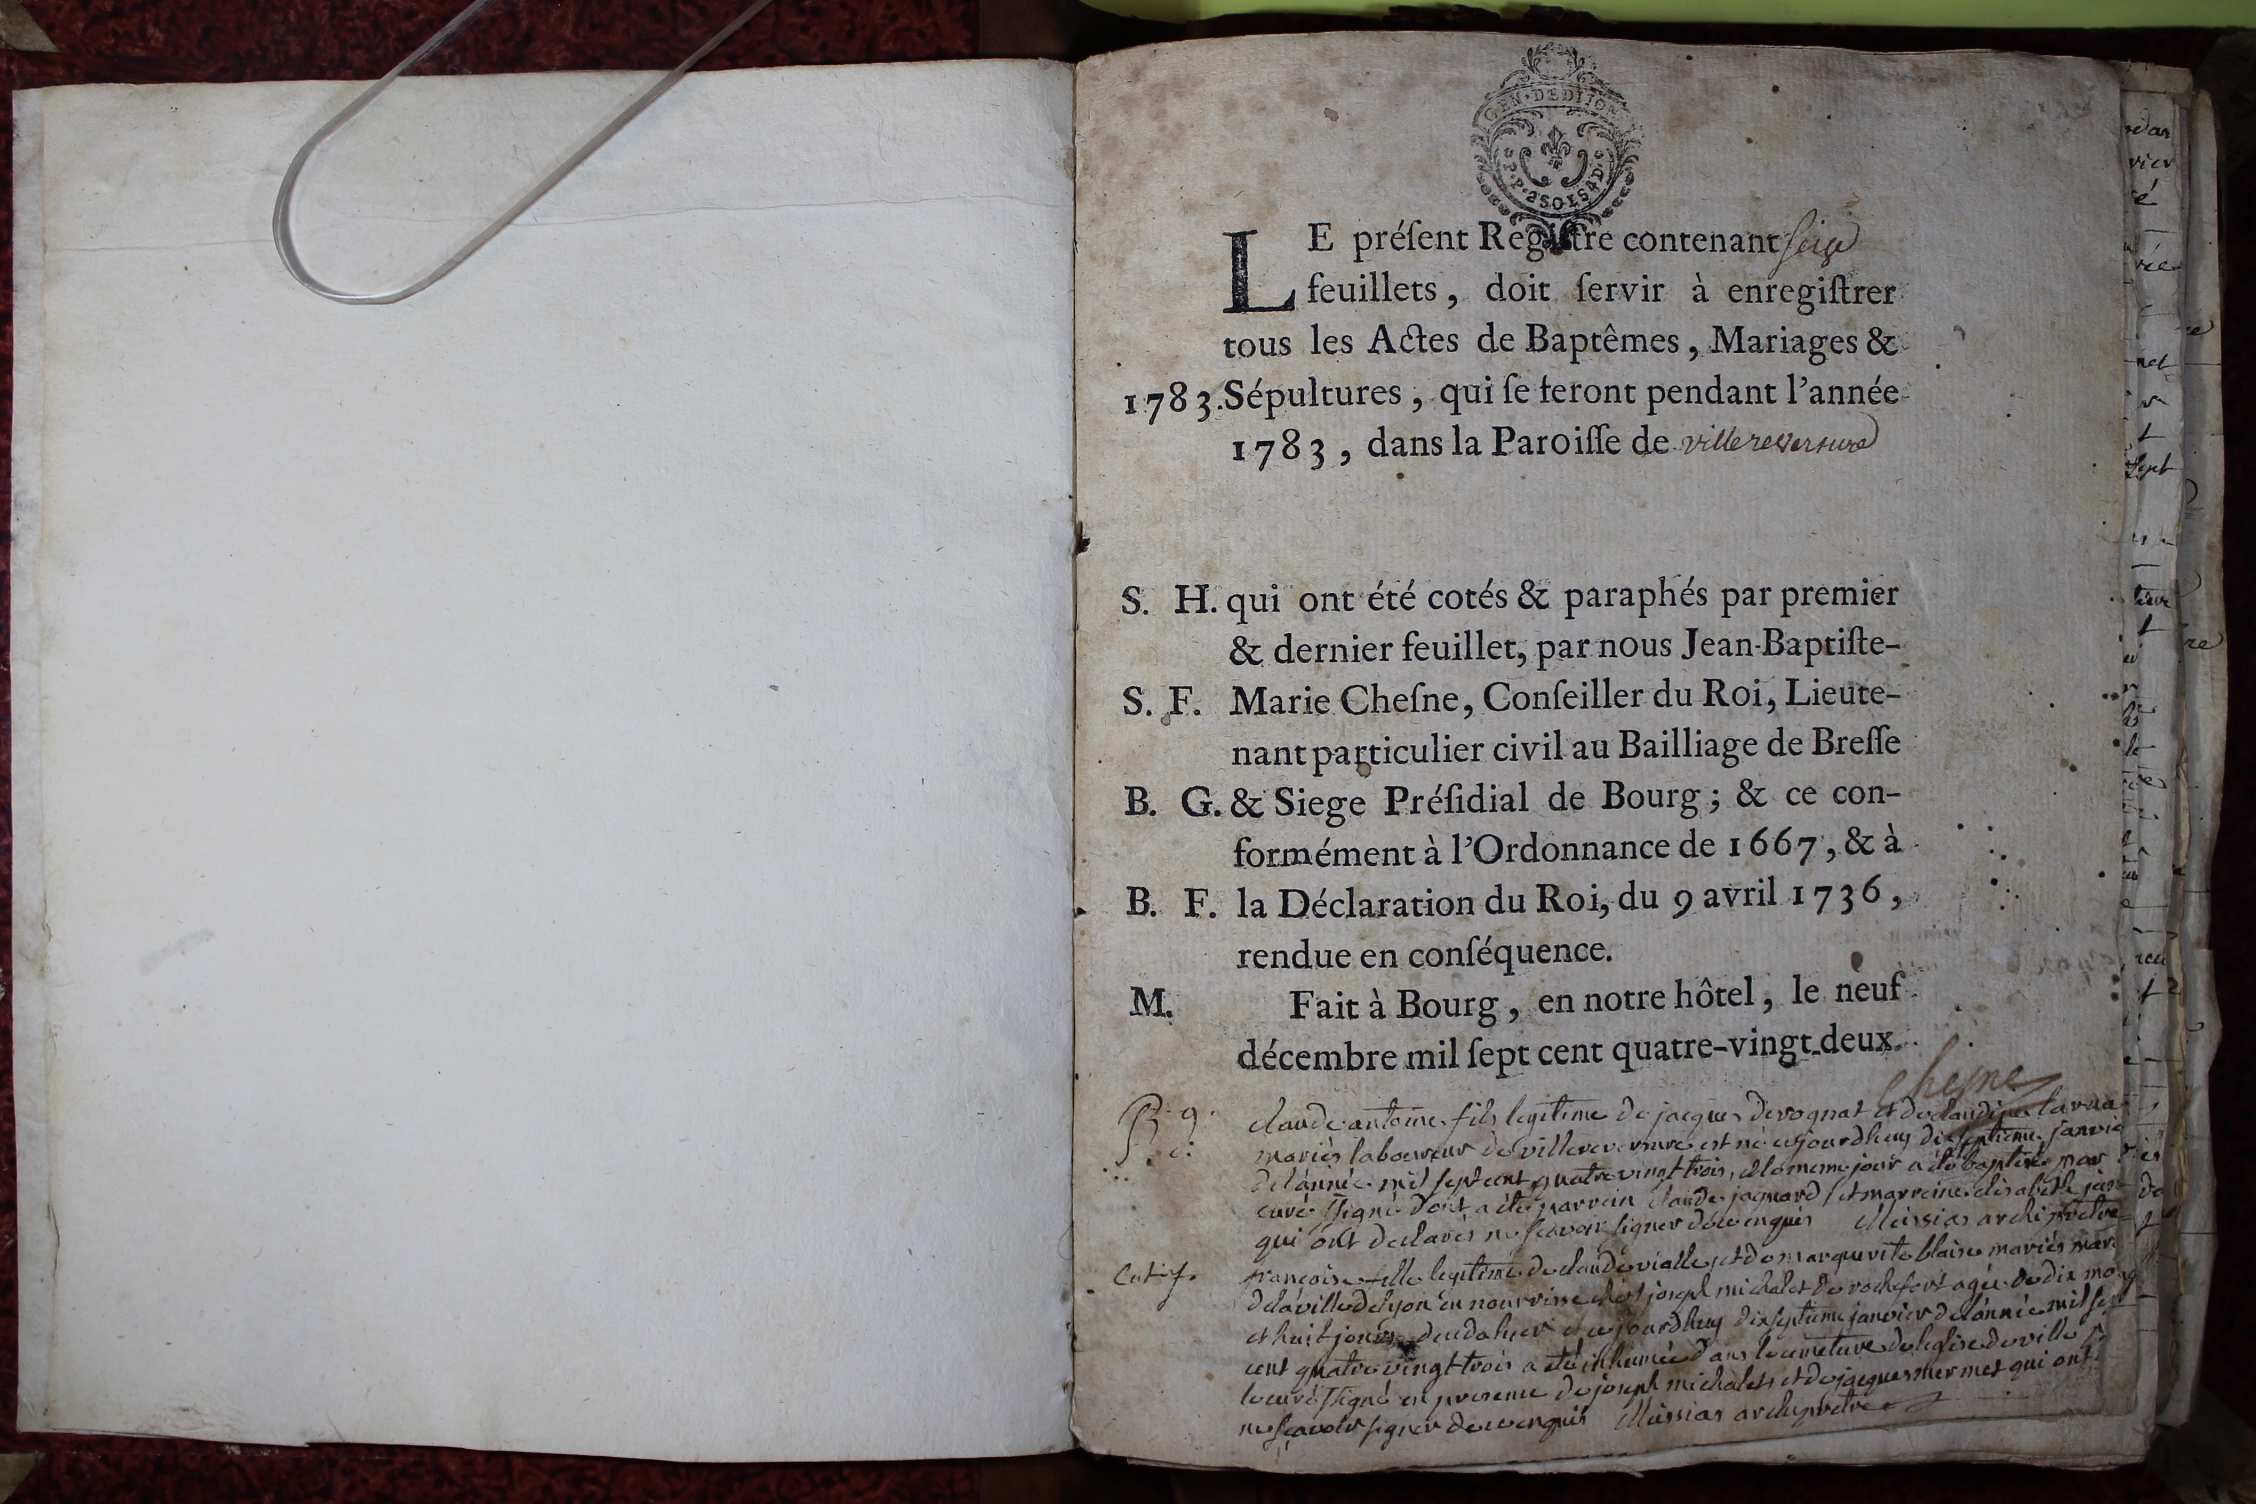 GEN·DEDIJON
P·P·2SOLS4D·
LE préſent Regiſtre contenant seize
feuillets, doit ſervir à enregiſtrer
tous les Actes de Baptêmes, Mariages &
1783. Sépultures, qui ſe feront pendant l'année
1783, dans la Paroiſſe de villereversure
S. H. qui ont été cotés & paraphés par premier
& dernier feuillet, par nous Jean-Baptiſte-
S. F. Marie Cheſne, Conſeiller du Roi, Lieute-
nant particulier civil au Bailliage de Breſſe
B. G. & Siege Préſidial de Bourg; & ce con-
formément à l'Ordonnance de 1667, & à
B. F. la Déclaration du Roi, du 9 avril 1736,
rendue en conſéquence.
M. Fait à Bourg, en notre hôtel, le neuf
décembre mil ſept cent quatre-vingt-deux.
Chesne
B. g. claude antoine fils legitime de jacques devognat et de claudine
mariés laboureur de villereversure est né cejourdhuy dix septieme janvie
de lannée mil sept cent quatre vingt trois, et le meme jour a été baptisé par
curé ssigné dont a été parrein claude jaquard et marreine elisabeth
qui ont declarés ne sçavoir signer de ce enquis Messias archiprêtre
francoise fille legitime de claude vialle et de marguerite blaise mariés
de la ville de lyon en nourrisse chés joseph michalet de rochefort agée de dix mo
et huit jours decedée hier et cejourdhuy dix septieme janvier de lannée mil sep
cent quatre vingt trois a été inhumée dans le cimetiere de leglise de ville
le curé ssigné en presence de joseph michalet et de jacques mermet qui ont
ne sçavoir signer de ce enquis Messias archiprêtre